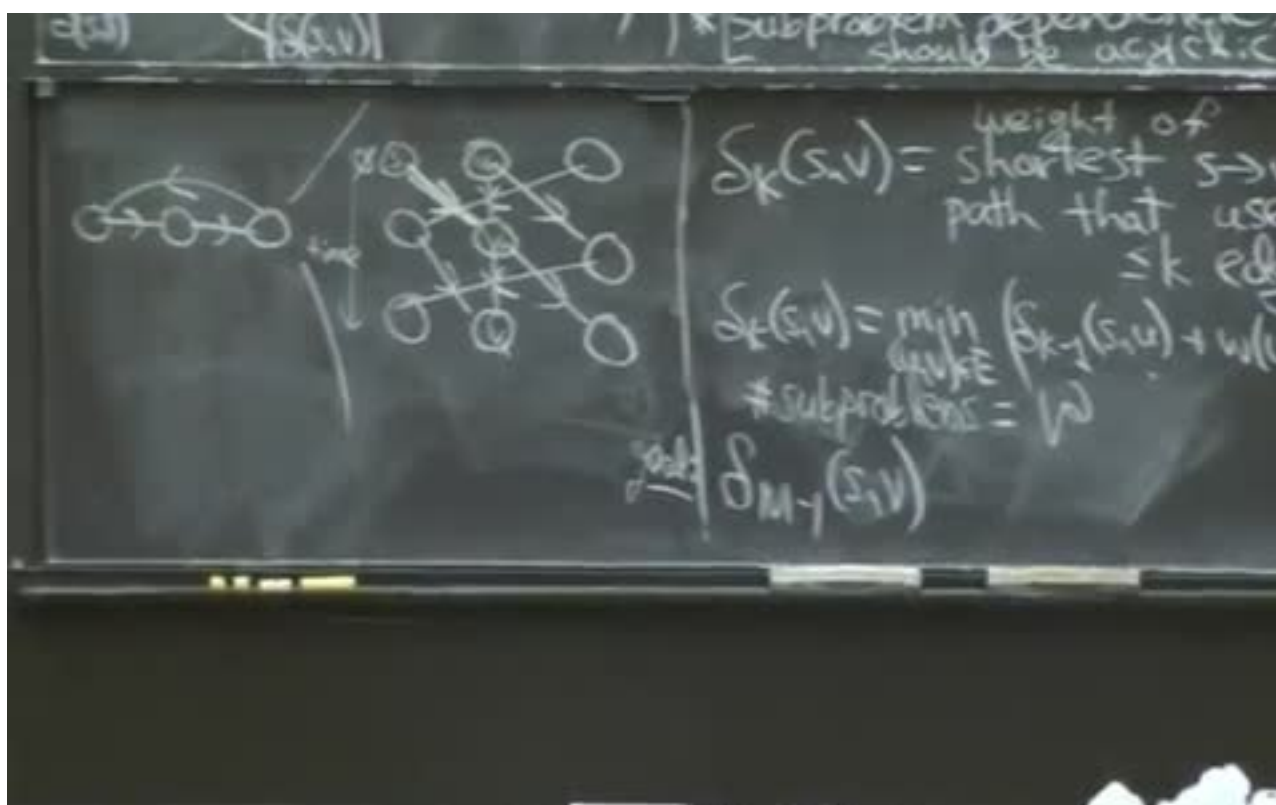 δ(s,v)
* Subproblem dependencies
should be acyclic
time
s
v
δₖ(s,v) = weight of
shortest s→v
path that use
≤k ed
δₖ(s,v) = min (δₖ₋₁(s,u) + w(u
(u,v)∈E
#subproblems =
goal:
(s,v)